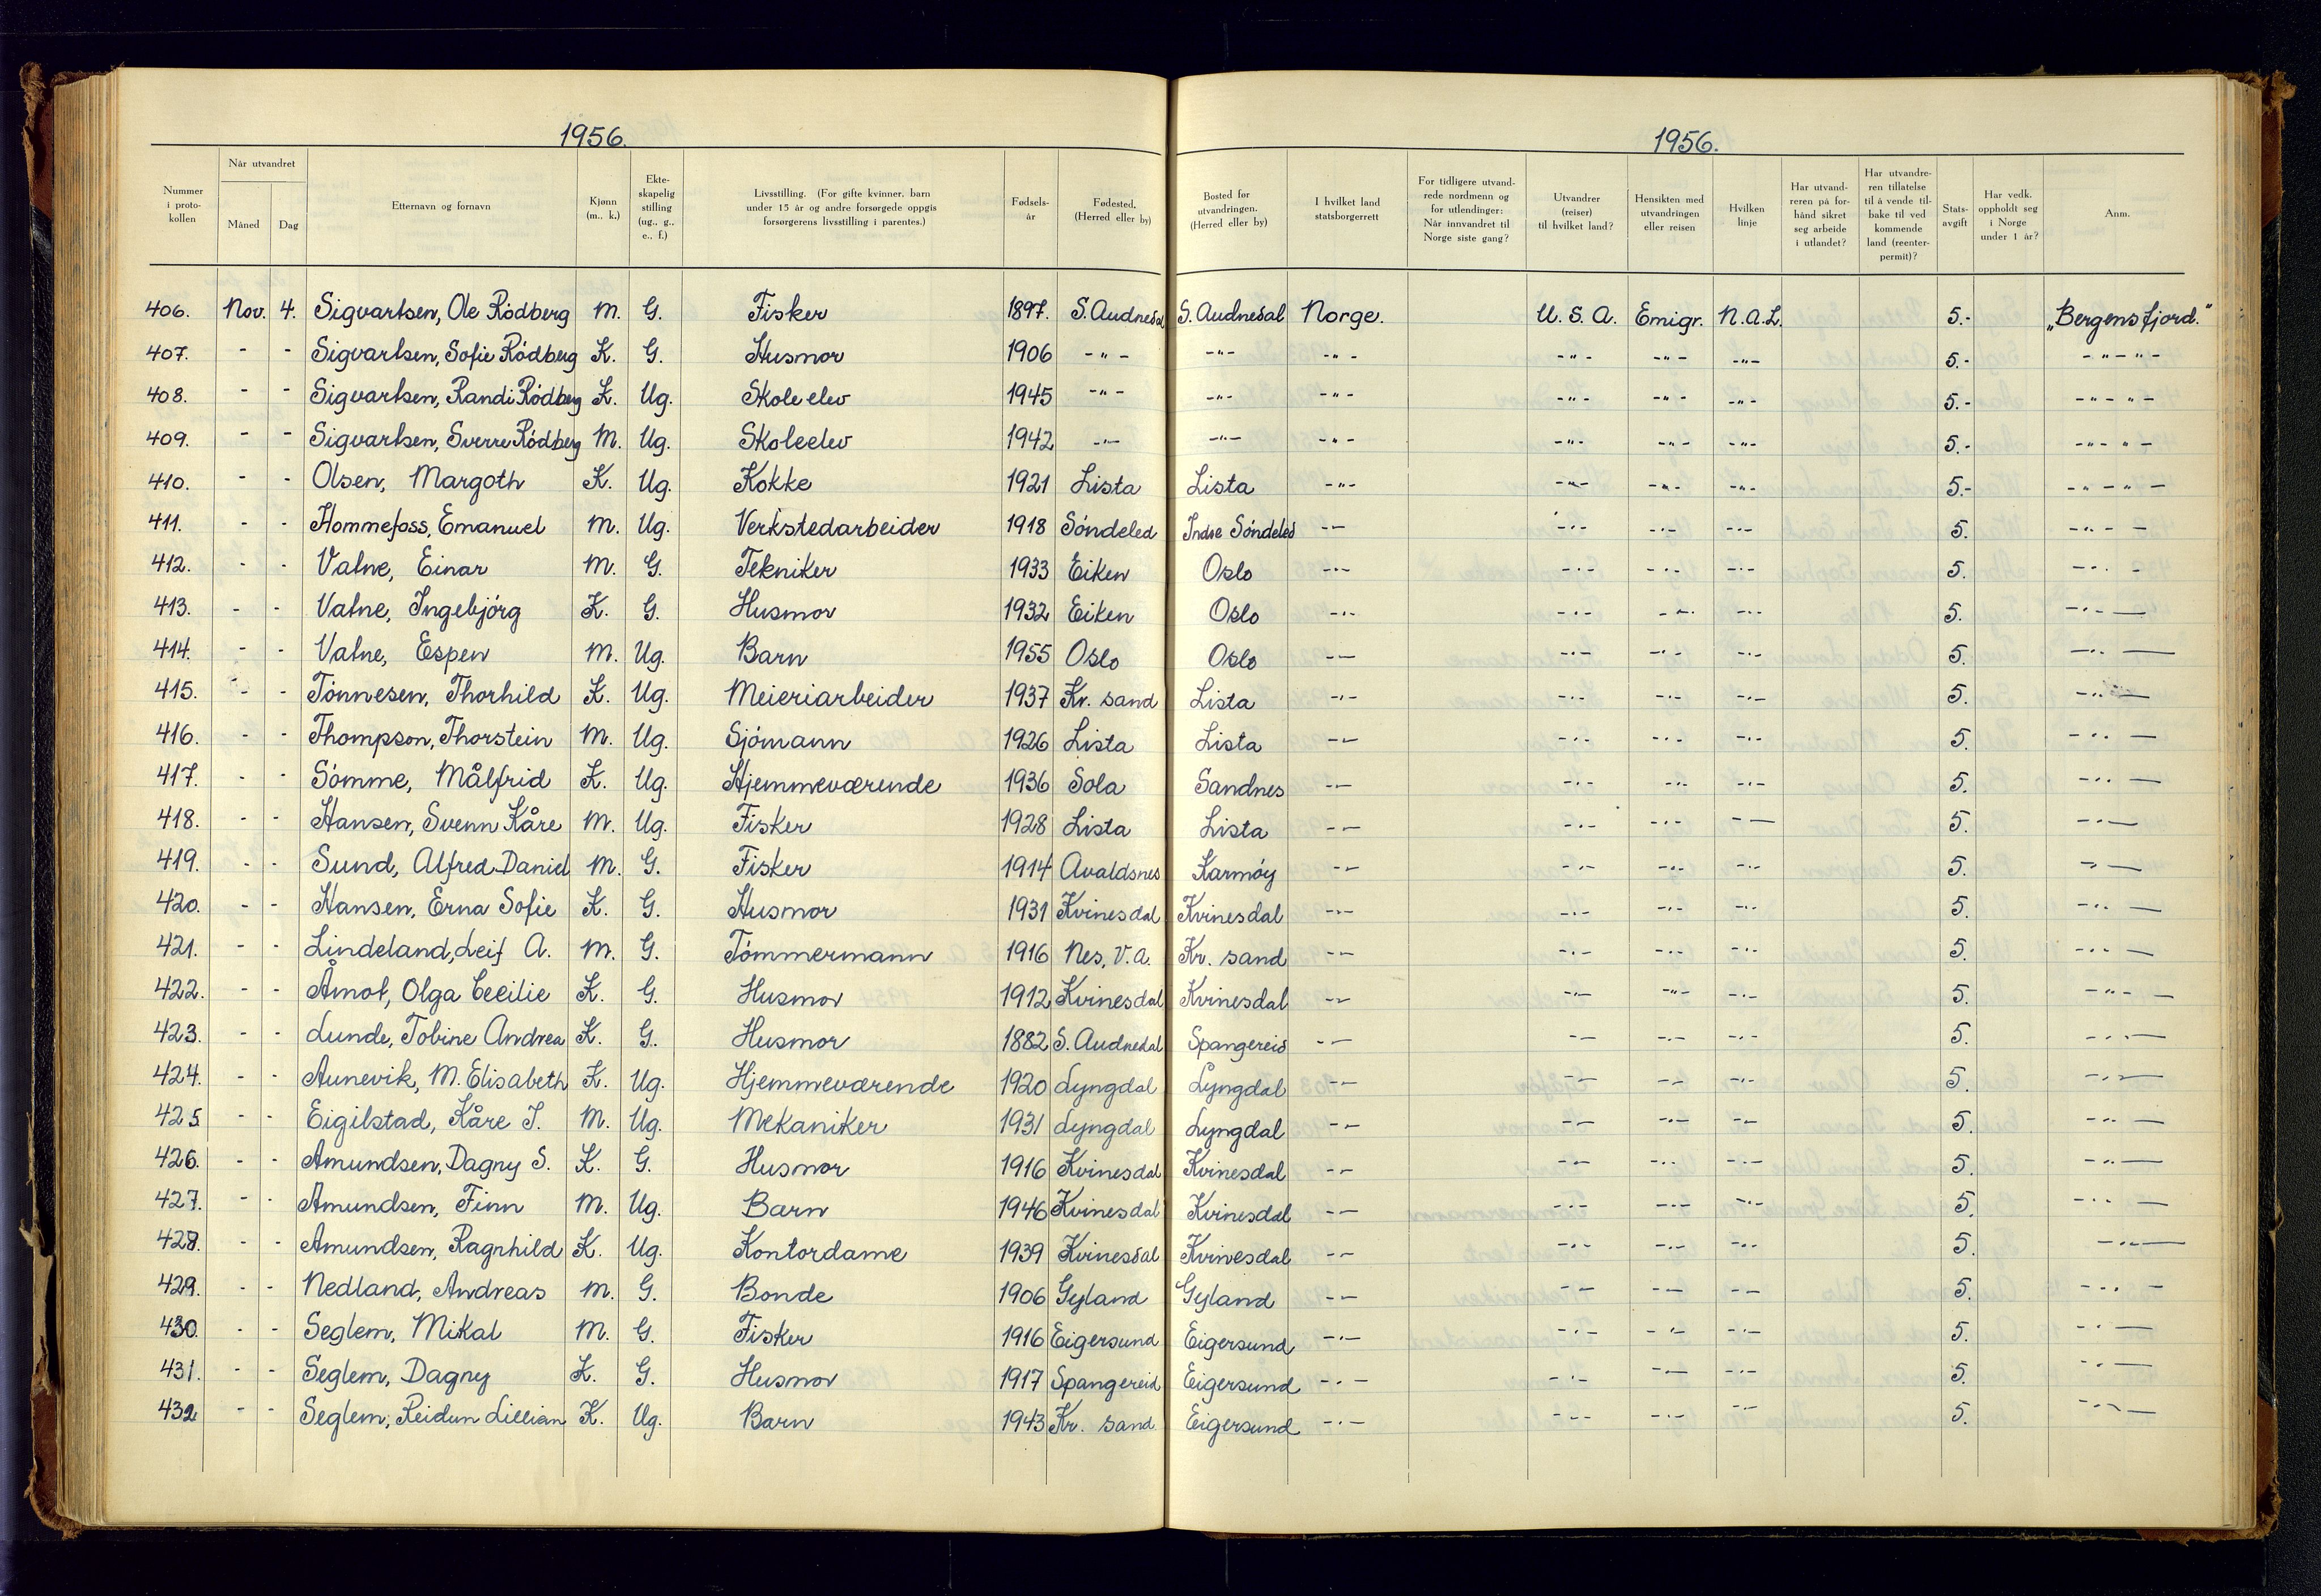 1956.
1956.
Nummer i proto-kollen | Når utvandret | Måned | Dag | Etternavn og fornavn | Kjønn (m., k.) | Ekte-skapelig stilling (ug., g., e., f.) | Livsstilling. (For gifte kvinner, barn under 15 år og andre forsørgede oppgis forsørgerens livsstilling i parentes.) | Fødsels-år | Fødested. (Herred eller by) | Bosted før utvandringen. (Herred eller by) | I hvilket land statsborgerrett | For tidligere utvand-rede nordmenn og for utlendinger: Når innvandret til Norge siste gang? | Utvandrer (reiser) til hvilket land? | Hensikten med utvandringen eller reisen | Hvilken linje | Har utvand-reren på for-hånd sikret seg arbeide i utlandet? | Har utvandre-ren tillatelse til å vende til-bake til ved kommende land (reenter-permit)? | Stats-avgift | Har vedk. oppholdt seg i Norge under 1 år? | Anm.
406. Nov. 4. Sigvartsen, Ole Rödberg M. G. Fisker 1897. S. Audnedal S. Audnedal Norge. U.S.A. Emigr. N.A.L. 5.- „Bergensfjord."
407. - - Sigvartsen, Sofie Rödberg K. G. Husmor 1906 -"- -"- -"- -"- -"- -"- 5.- -"-"-
408. - - Sigvartsen, Randi Rödberg K. Ug. Skoleelev 1945 -"- -"- -"- -"- -"- -"- 5.- -"-"-
409. - - Sigvartsen, Sverre Rödberg M. Ug. Skoleelev 1942 -"- -"- -"- -"- -"- -"- 5.- -"-"-
410. - - Olsen, Margoth K. Ug. Kokke 1921 Lista Lista -"- -"- -"- -"- 5.- -"-"-
411. - - Hommefoss, Emanuel M. Ug. Verkstedarbeider 1918 Söndeled Indre Söndeled -- -"- -"- -"- 5. -"- -
412. - - Vatne, Einar M. G. Tekniker 1933 Eiken Oslo -"- -"- -"- -"- 5. -"- -
413. - - Vatne, Ingebjörg K. G. Husmor 1932 Eiken Oslo -"- -"- -"- -"- 5. -"- -
414. - - Vatne, Espen M. Ug. Barn 1955 Oslo Oslo -- -"- -"- -"- 5. -"- -
415. - - Tönnesen, Thorhild K. Ug. Meieriarbeider 1937 Kr. sand Lista -"- -"- -"- -"- 5. -"- -
416. - - Thompson, Thorstein M. Ug. Sjömann 1926 Lista Lista -- -"- -"- -"- 5. -"- -
417. - - Sömme, Målfrid K. Ug. Hjemmeværende 1936 Sola Sandnes -- -"- -"- -"- 5. -"- -
418. - - Hansen, Svenn Kåre M. Ug. Fisker 1928 Lista Lista -- -"- -"- -- 5. -"-
419. - - Sund, Alfred Daniel M. G. Fisker 1914 Avaldsnes Karmöy -- -"- -"- -"- 5. -"-
420. - - Hansen, Erna Sofie K. G. Husmor 1931 Kvinesdal Kvinesdal -"- -"- -"- -"- 5. -"- -
421. - - Lindeland, Leif A. M. G. Tömmermann 1916 Nes, V.A. Kr. sand -- -"- -"- -"- 5. -"- -
422. - - Åmot, Olga Cecilie K. G. Husmor 1912 Kvinesdal Kvinesdal -- -"- -"- -"- 5. -"- -
423. - - Lunde, Tobine Andrea K. G. Husmor 1882 S. Audnedal Spangereid -- -- -"- -"- 5. -"-
424. - - Aunevik, M. Elisabeth K. Ug. Hjemmeværende 1920 Lyngdal Lyngdal -- -- -- -"- 5. -"-
425. - - Eigilstad, Kåre J. M. Ug. Mekaniker 1931 Lyngdal Lyngdal -- -- -"- -- 5. -"- -
426. - - Amundsen, Dagny S. K. G. Husmor 1916 Kvinesdal Kvinesdal -- -- -"- -"- 5. -"-
427. - - Amundsen, Finn M. Ug. Barn 1946 Kvinesdal Kvinesdal -- -"- -"- -"- 5. -"- -
428. - - Amundsen, Ragnhild K. Ug. Kontordame 1939 Kvinesdal Kvinesdal -- -"- -"- -"- 5. -"-
429. - - Nedland, Andreas M. G. Bonde 1906 Gyland Gyland -- -- -- -- 5. -"- -
430. - - Seglem, Mikal M. G. Fisker 1916 Eigersund Eigersund -"- -"- -"- -"- 5. -"-
431. - - Seglem, Dagny K. G. Husmor 1917 Spangereid Eigersund -"- -"- -- -"- 5. -"-
432. - - Seglem, Reidun Lillian K. Ug. Barn 1943 Kr. sand Eigersund -"- -"- -"- -"- 5. -"- -